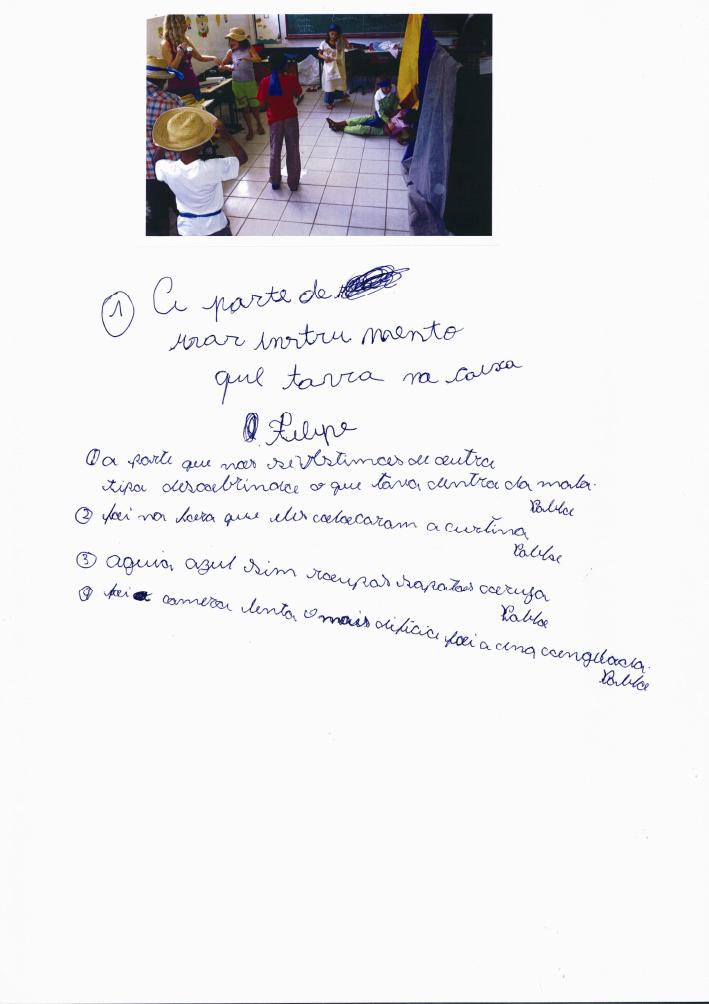 ① A parte de
usar instru mento
que tava na caixa
Felipe
① a parte que nos sivistimos de outra
tipa descobrindo o que tava dentra da mala.
Pablo
② foi na hora que eles colocaram a curtina
Pablo
③ aguia azul sim roupas sapatos coruja
Pablo
④ foi camera lenta o mais dificio foi a cina congelada.
Pablo